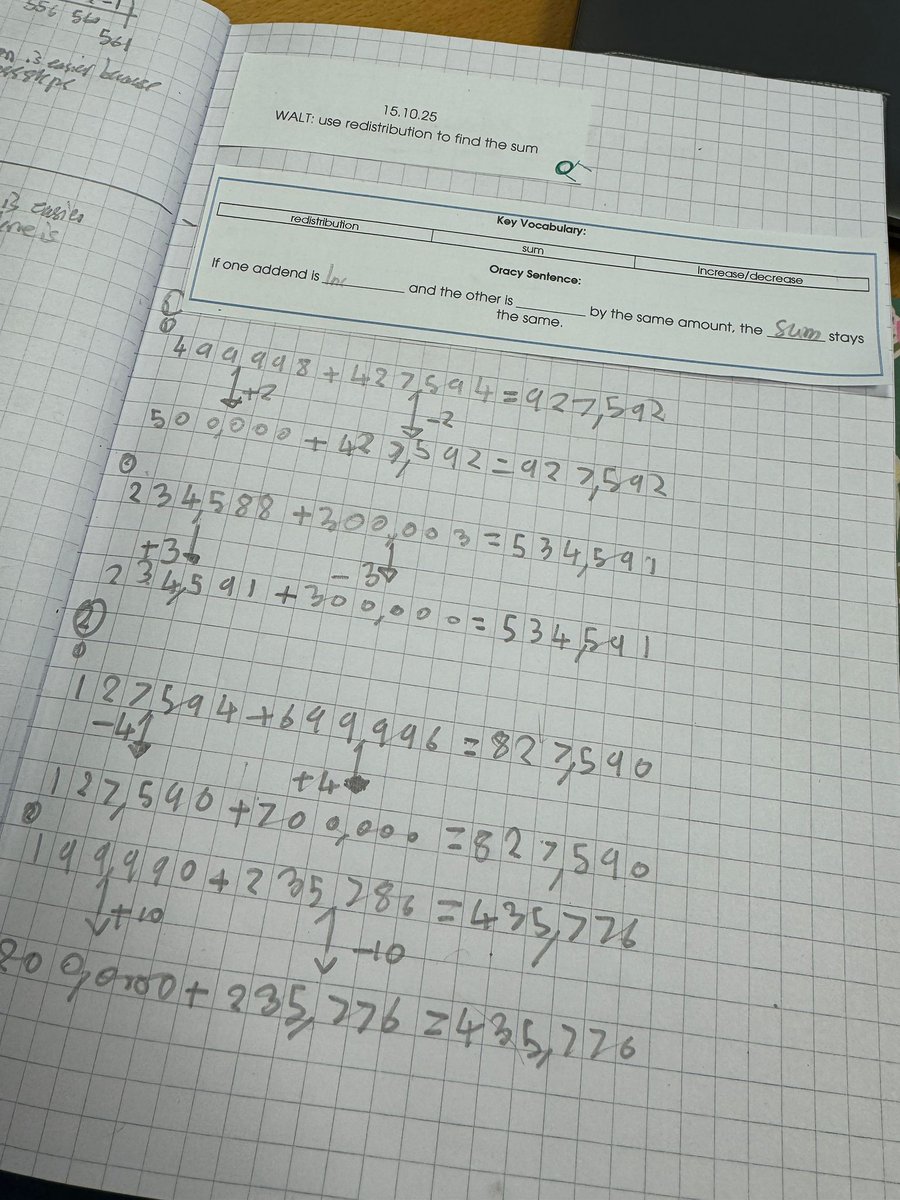 556 56
561
is easier because
is easier
15.10.25
WALT: use redistribution to find the sum
Key Vocabulary:
redistribution sum Increase/decrease
Oracy Sentence:
If one addend is Inc and the other is ________ by the same amount, the sum stays
the same.
499998 + 427,594 = 927,592
+2 -2
500,000 + 427,592 = 927,592
234,588 + 300,003 = 534,591
+3 -3
234,591 + 300,000 = 534,591
2
127,594 + 699,996 = 827,590
-4 +4
127,590 + 700,000 = 827,590
199,990 + 235,786 = 435,776
+10 -10
200,000 + 235,776 = 435,776